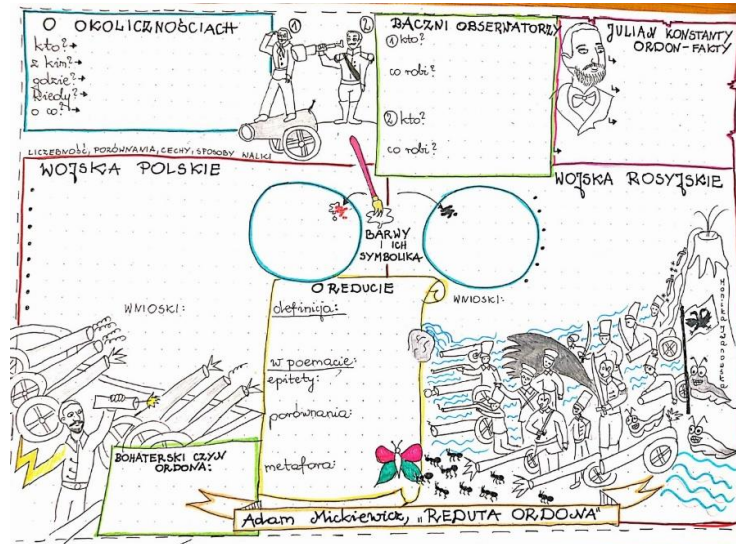 O OKOLICZNOŚCIACH
kto?→
z kim?→
gdzie?→
kiedy?→
o co?→
1
2
BACZNI OBSERWATORZY
① kto?
co robi?
② kto?
co robi?
JULIAN KONSTANTY
ORDON-FAKTY
LICZEBNOŚĆ, PORÓWNANIA, CECHY, SPOSOBY WALKI
WOJSKA POLSKIE
WOJSKA ROSYJSKIE
BARWY
I ICH
SYMBOLIKA
WNIOSKI:
O REDUCIE
definicja:
w poemacie:
epitety:
porównania:
metafora:
WNIOSKI:
Monika Iwanowska
BOHATERSKI CZYN
ORDONA:
Adam Mickiewicz, „REDUTA ORDONA”